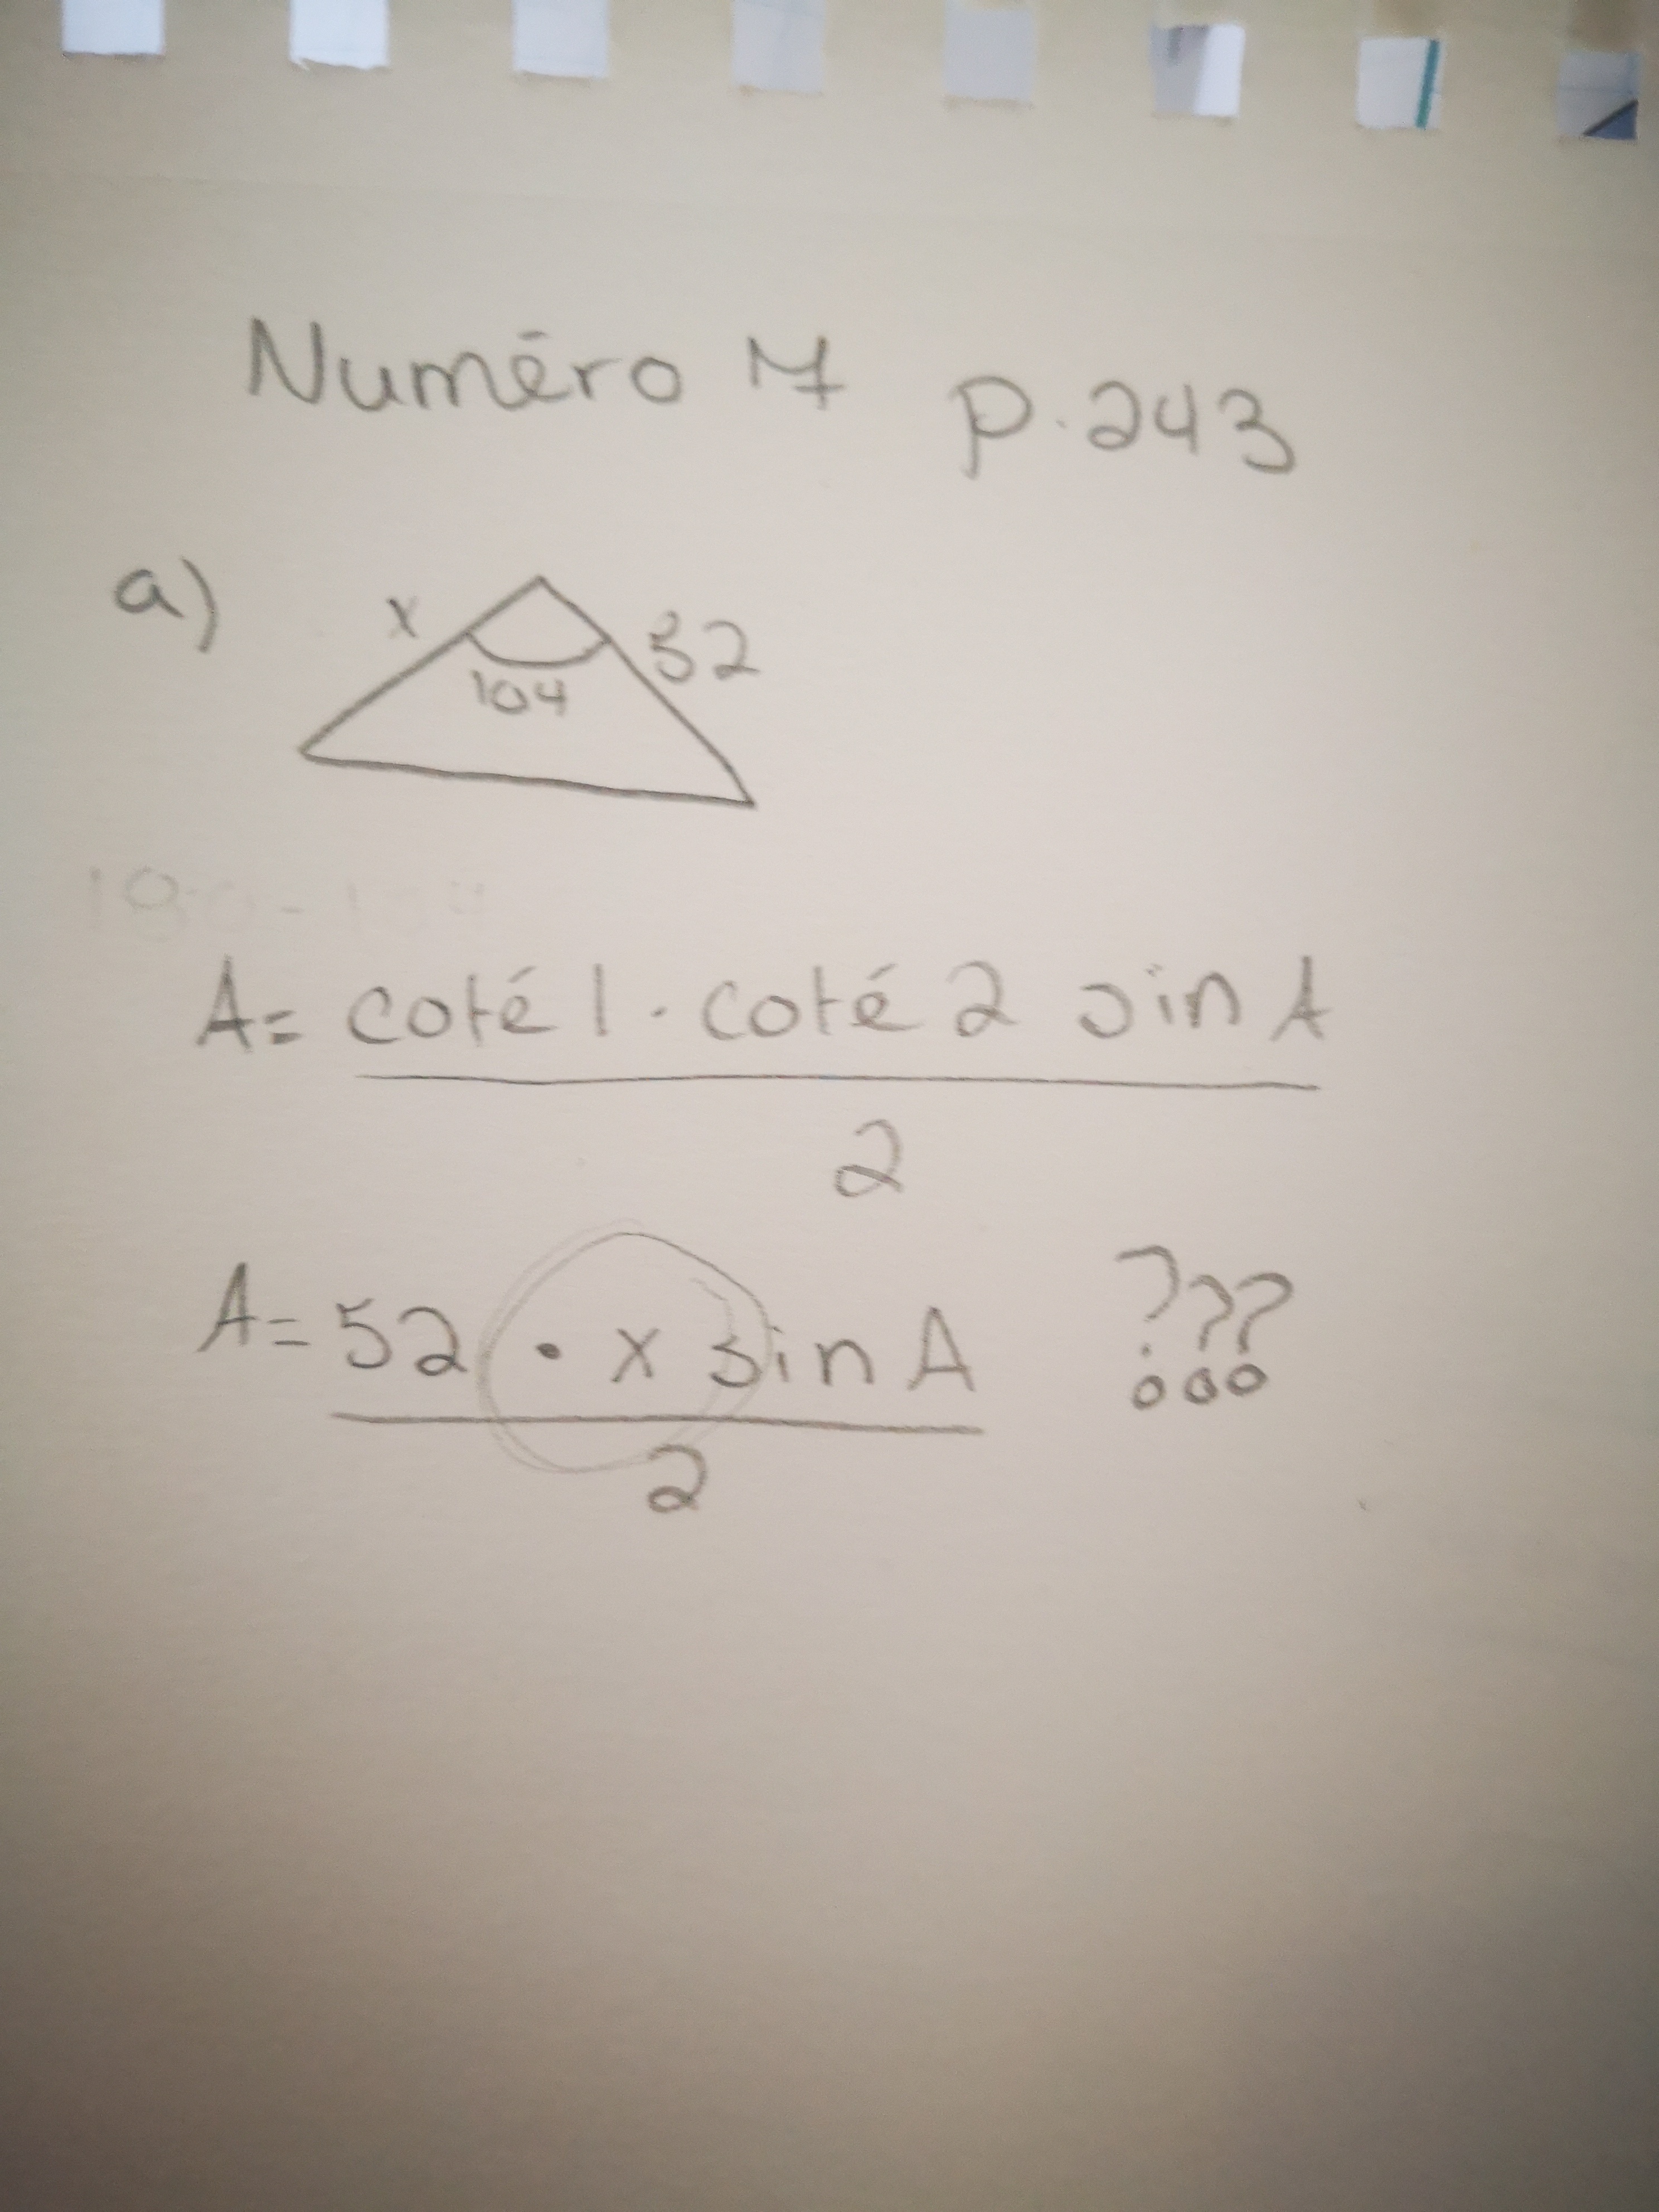 Numéro 7 p.243
a)
x 52
104
A= coté 1 · coté 2 sin A
2
A= 52 · x sin A ???
2